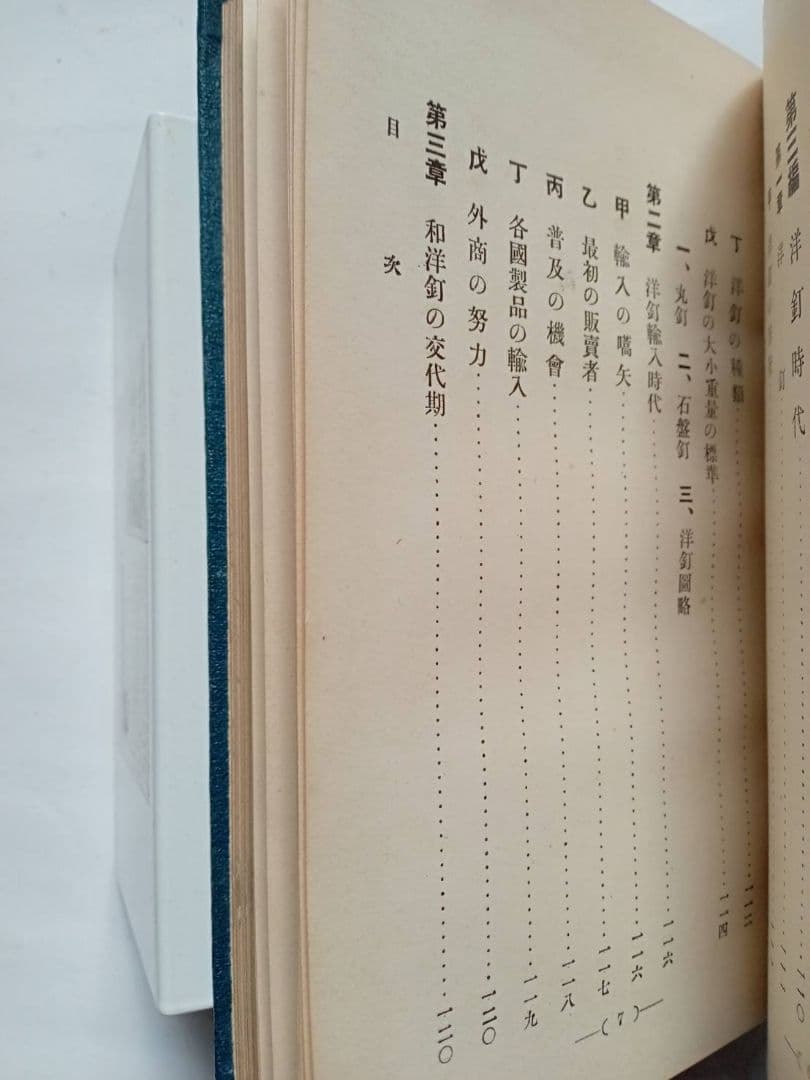 第三編 洋釘時代
丁 洋釘の種類……一一二
戊 洋釘の大小重量の標準……一一四
一、丸釘 二、石盤釘 三、洋釘圖略
第二章 洋釘輸入時代……一一六
甲 輸入の嚆矢……一一六
乙 最初の販賣者……一一七
丙 普及の機會……一一八
丁 各國製品の輸入……一一九
戊 外商の努力……一二〇
第三章 和洋釘の交代期……一二〇
目次
—(7)—